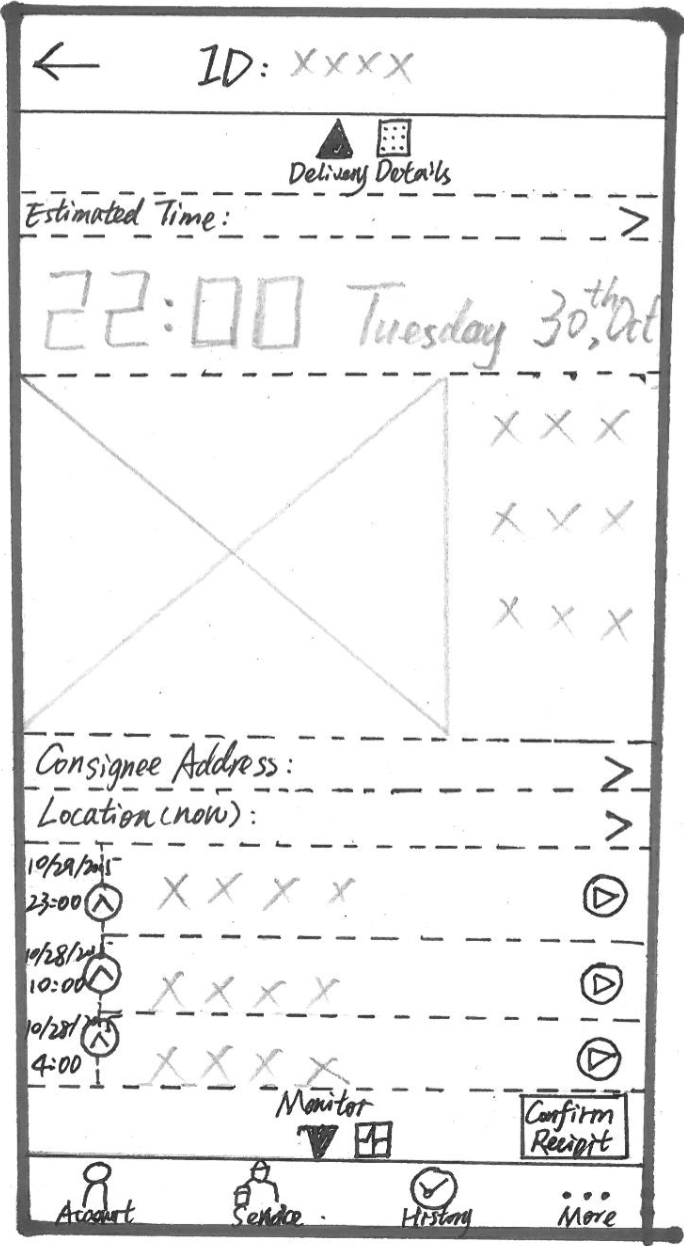 ID: XXXX
Delivery Details
Estimated Time:
22:00 Tuesday 30th, Oct
XXX
XXX
XXX
Consignee Address:
Location(now):
10/29/2015
23:00 XXXX
10/28/2015
10:00 XXXX
10/28/2015
4:00 XXXX
Monitor
Confirm
Recipit
Account Service History More